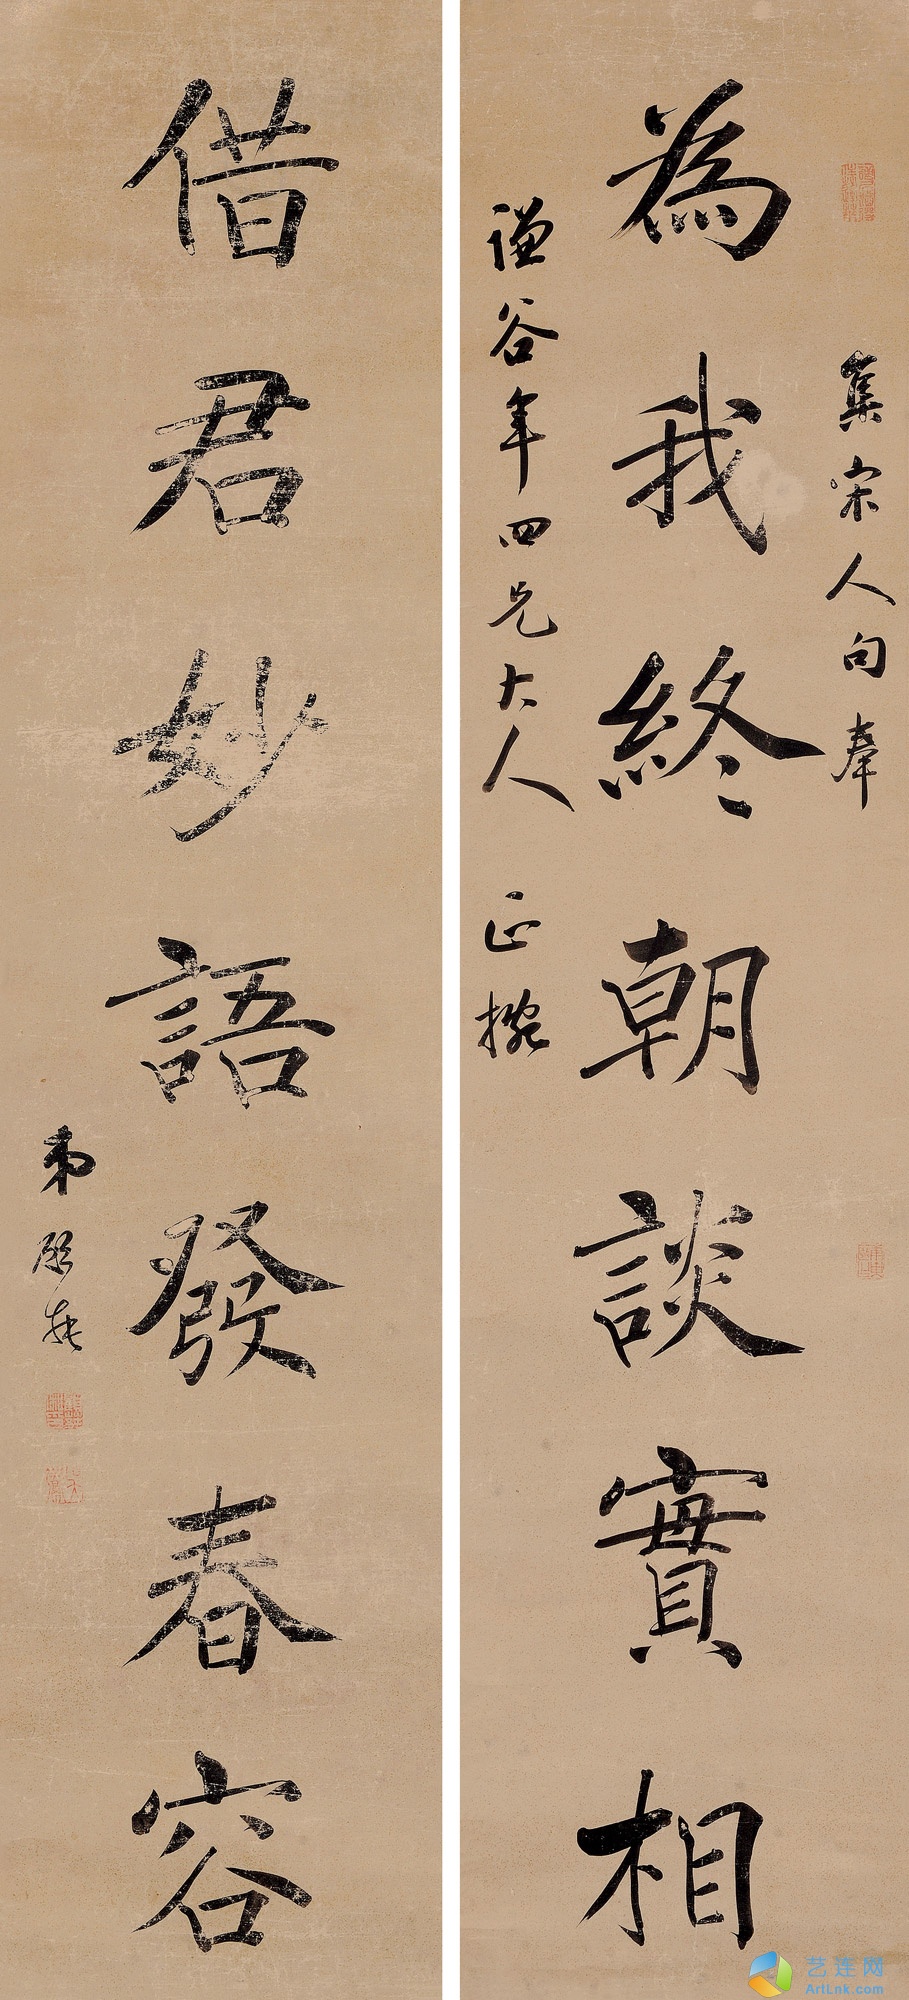 集宋人句奉
為我終朝談實相
謙谷年四兄大人 正捥
借君妙語發春容
弟
艺连网
ArtLnk.com